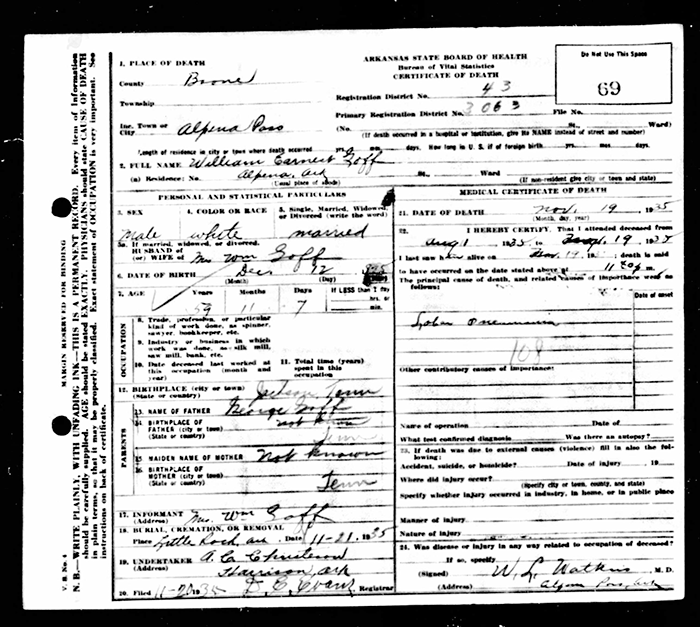 ARKANSAS STATE BOARD OF HEALTH
Bureau of Vital Statistics
CERTIFICATE OF DEATH
Do Not Use This Space
69
1. PLACE OF DEATH
County Boone
Township
Inc. Town or City Alpena Pass
Registration District No. 43
Primary Registration District No. 3063 File No.
(No. St. Ward)
(If death occurred in a hospital or institution, give its NAME instead of street and number)
Length of residence in city or town where death occurred yrs. mos. days. How long in U. S. if of foreign birth. yrs. mos. days
2. FULL NAME William Earnest Goff
(a) Residence: No. Alpena, Ark St. Ward
(Usual place of abode) (If non-resident give city or town and state)
PERSONAL AND STATISTICAL PARTICULARS
3. SEX Male
4. COLOR OR RACE white
5. Single, Married, Widowed, or Divorced (write the word) married
5a. If married, widowed, or divorced.
HUSBAND of
(or) WIFE of Mrs Wm Goff
6. DATE OF BIRTH Dec 12
(Month) (Day)
7. AGE 59 11 Days 7 If LESS than 1 day hrs. or min.
OCCUPATION
8. Trade, profession, or particular kind of work done, as spinner, sawyer, bookkeeper, etc.
9. Industry or business in which work was done, as silk mill, saw mill, bank, etc.
10. Date deceased last worked at this occupation (month and year)
11. Total time (years) spent in this occupation
12. BIRTHPLACE (city or town) Jackson Tenn
(State or country)
PARENTS
13. NAME OF FATHER George Goff
14. BIRTHPLACE OF FATHER (city or town) not known
(State or country) Tenn
15. MAIDEN NAME OF MOTHER Not Known
16. BIRTHPLACE OF MOTHER (city or town)
(State or country) Tenn
17. INFORMANT Mrs Wm Goff
(Address)
18. BURIAL, CREMATION, OR REMOVAL
Place Little Rock, Ark Date 11-21, 1935
19. UNDERTAKER A. C. Christeson
(Address) Harrison, Ark
20. Filed 11-20 1935 D. E. Evans Registrar
MEDICAL CERTIFICATE OF DEATH
21. DATE OF DEATH Nov. 19 1935
(Month, day, year)
22. I HEREBY CERTIFY, That I attended deceased from
Aug 1 1935, to Nov. 19 1935
I last saw him alive on Nov. 19, 19 ; death is said
to have occurred on the date stated above at 11 m.
The principal cause of death, and related causes of importance were as follows:
Date of onset
Lobar Pneumonia
108
Other contributory causes of importance:
Name of operation Date of
What test confirmed diagnosis Was there an autopsy?
23. If death was due to external causes (violence) fill in also the following:
Accident, suicide, or homicide? Date of injury 19
Where did injury occur?
(Specify city or town, county, and state)
Specify whether injury occurred in industry, in home, or in public place
Manner of injury
Nature of injury
24. Was disease or injury in any way related to occupation of deceased?
If so, specify
(Signed) W. L. Watkins M. D.
(Address) Alpena Pass, Ark
MARGIN RESERVED FOR BINDING
N. B.—WRITE PLAINLY, WITH UNFADING INK—THIS IS A PERMANENT RECORD. Every item of information
should be carefully supplied. AGE should be stated EXACTLY. PHYSICIANS should state CAUSE OF DEATH
in plain terms, so that it may be properly classified. Exact statement of OCCUPATION is very important. See
instructions on back of certificate.
V. S. No. 4